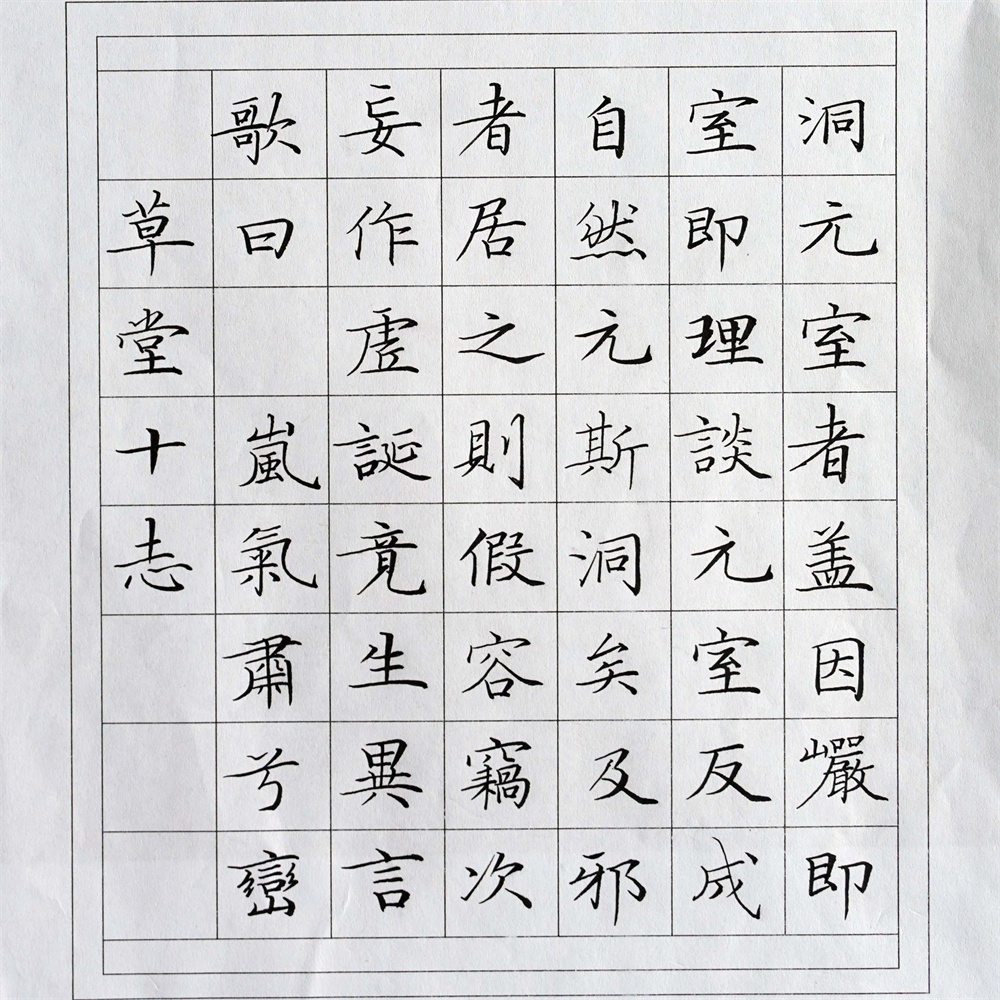 洞元室者盖因巖即
室即理談元室反成
自然元斯洞矣及邪
者居之則假容竊次
妄作虛誕竟生異言
歌曰 嵐氣肅兮巒
草堂十志